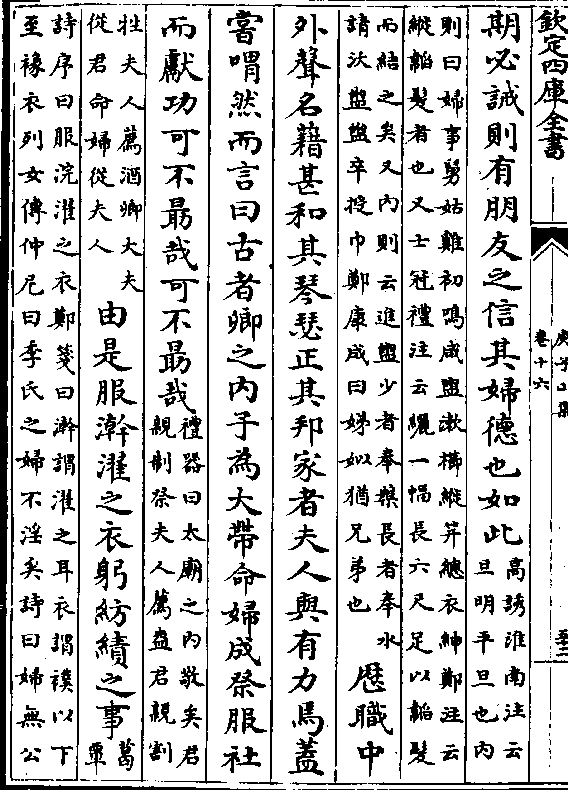 欽定四庫全書
庾子山集
卷十六
期必誡則有朋友之信其婦德也如此
高誘淮南注云
旦明平旦也内
則曰婦事舅姑雞初鳴咸盥漱櫛縰笄總衣紳鄭注云
縰韜髮者也又士冠禮注云纚一幅長六尺足以韜髮
而結之矣又内則云進盥少者奉槃長者奉水
請沃盥盥卒授巾鄭康成曰娣姒猶兄弟也
歷職中
外聲名藉甚和其琴瑟正其邦家者夫人與有力焉蓋
嘗喟然而言曰古者卿之内子為大帶命婦成祭服社
而獻功可不勗哉可不勗哉
禮器曰太廟之内敬矣君
親制祭夫人薦盎君親割
牲夫人薦酒卿大夫
從君命婦從夫人
由是服澣濯之衣躬紡績之事
葛
覃
詩序曰服浣濯之衣鄭箋曰澣謂濯之耳衣謂褘以下
至褖衣列女傳仲尼曰季氏之婦不淫矣詩曰婦無公